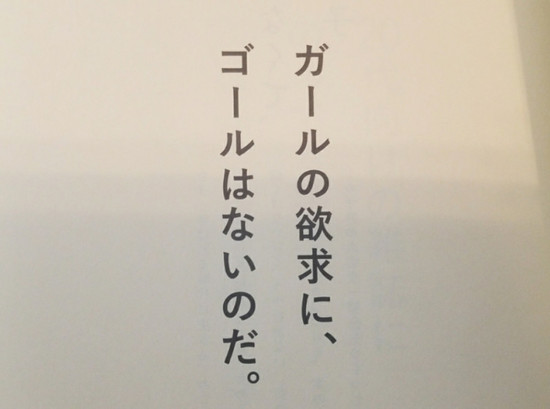 ガールの欲求に、
ゴールはないのだ。